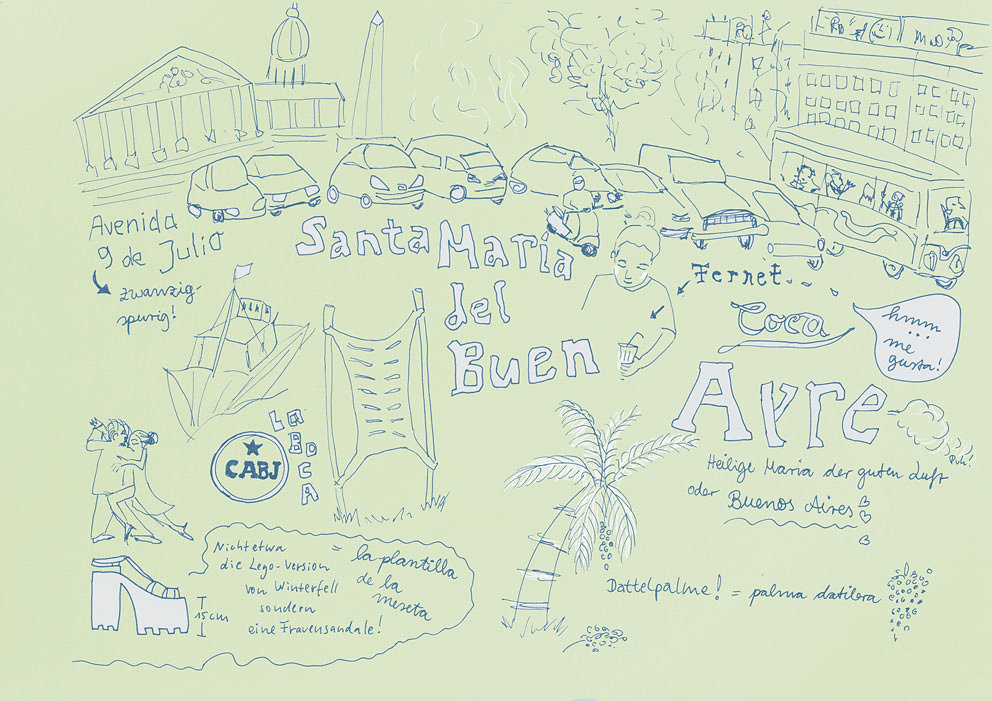 Avenida
9 de Julio
zwanzig-
spurig!
Santa María
del
Buen
Ayre
Fernet
Coca
hmm
...
me
gusta!
Puh!
Heilige Maria der guten Luft
oder Buenos Aires
LA
BOCA
CABJ
Nicht etwa
die Lego-Version
von Winterfell
sondern
eine Frauensandale!
= la plantilla
de la
meseta
15cm
Dattelpalme! = palma datilera